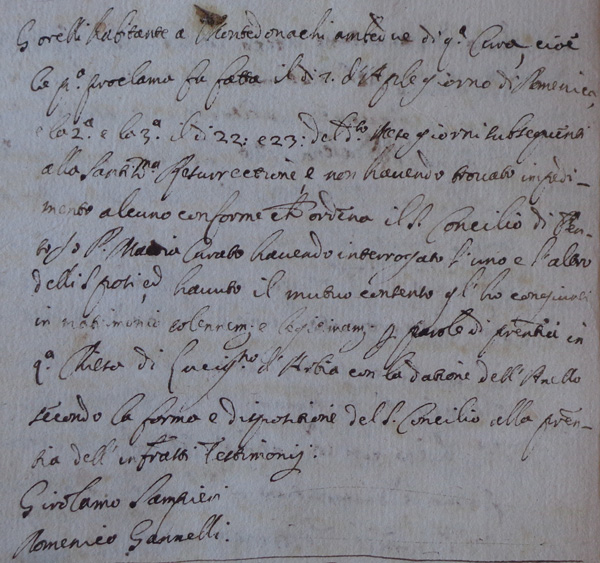 Gorelli habitante a Montedonachi amtedue di q.ª Cura, cioè
la p.ª proclama fu fatta il dì 7. d'Aple giorno di Domenica,
e la 2.ª e la 3.ª il dì 22: e 23: del d.to Mese giorni subsequenti
alla Santiss.ª Resurrectione, e non havendo trovato impedi-
mento alcuno conforme ordina il S. Concilio di Tren-
to, Io P. Curato havendo interrogato l'uno e l'altro
delli Sposi, ed havuto il mutuo consenso gl'ho congiunti
in matrimonio solennem: e legitimam: p parole di prenti in
q.ª Chiesa di d'Arbia con la datione dell'Anello
secondo la forma e dispositione del S. Concilio alla pren-
tia dell'infratti Testimonij.
Girolamo Sampieri
Domenico Gannelli.